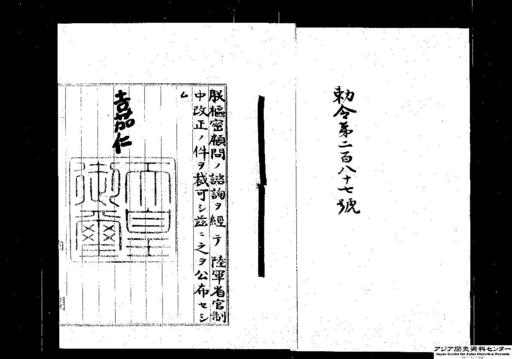 勅令第二百八十七號
朕樞密顧問ノ諮詢ヲ經テ陸軍省官制
中改正ノ件ヲ裁可シ茲ニ之ヲ公布セシ
ム
嘉仁
天皇
御璽
アジア歴史資料センター
Japan Center for Asian Historical Records